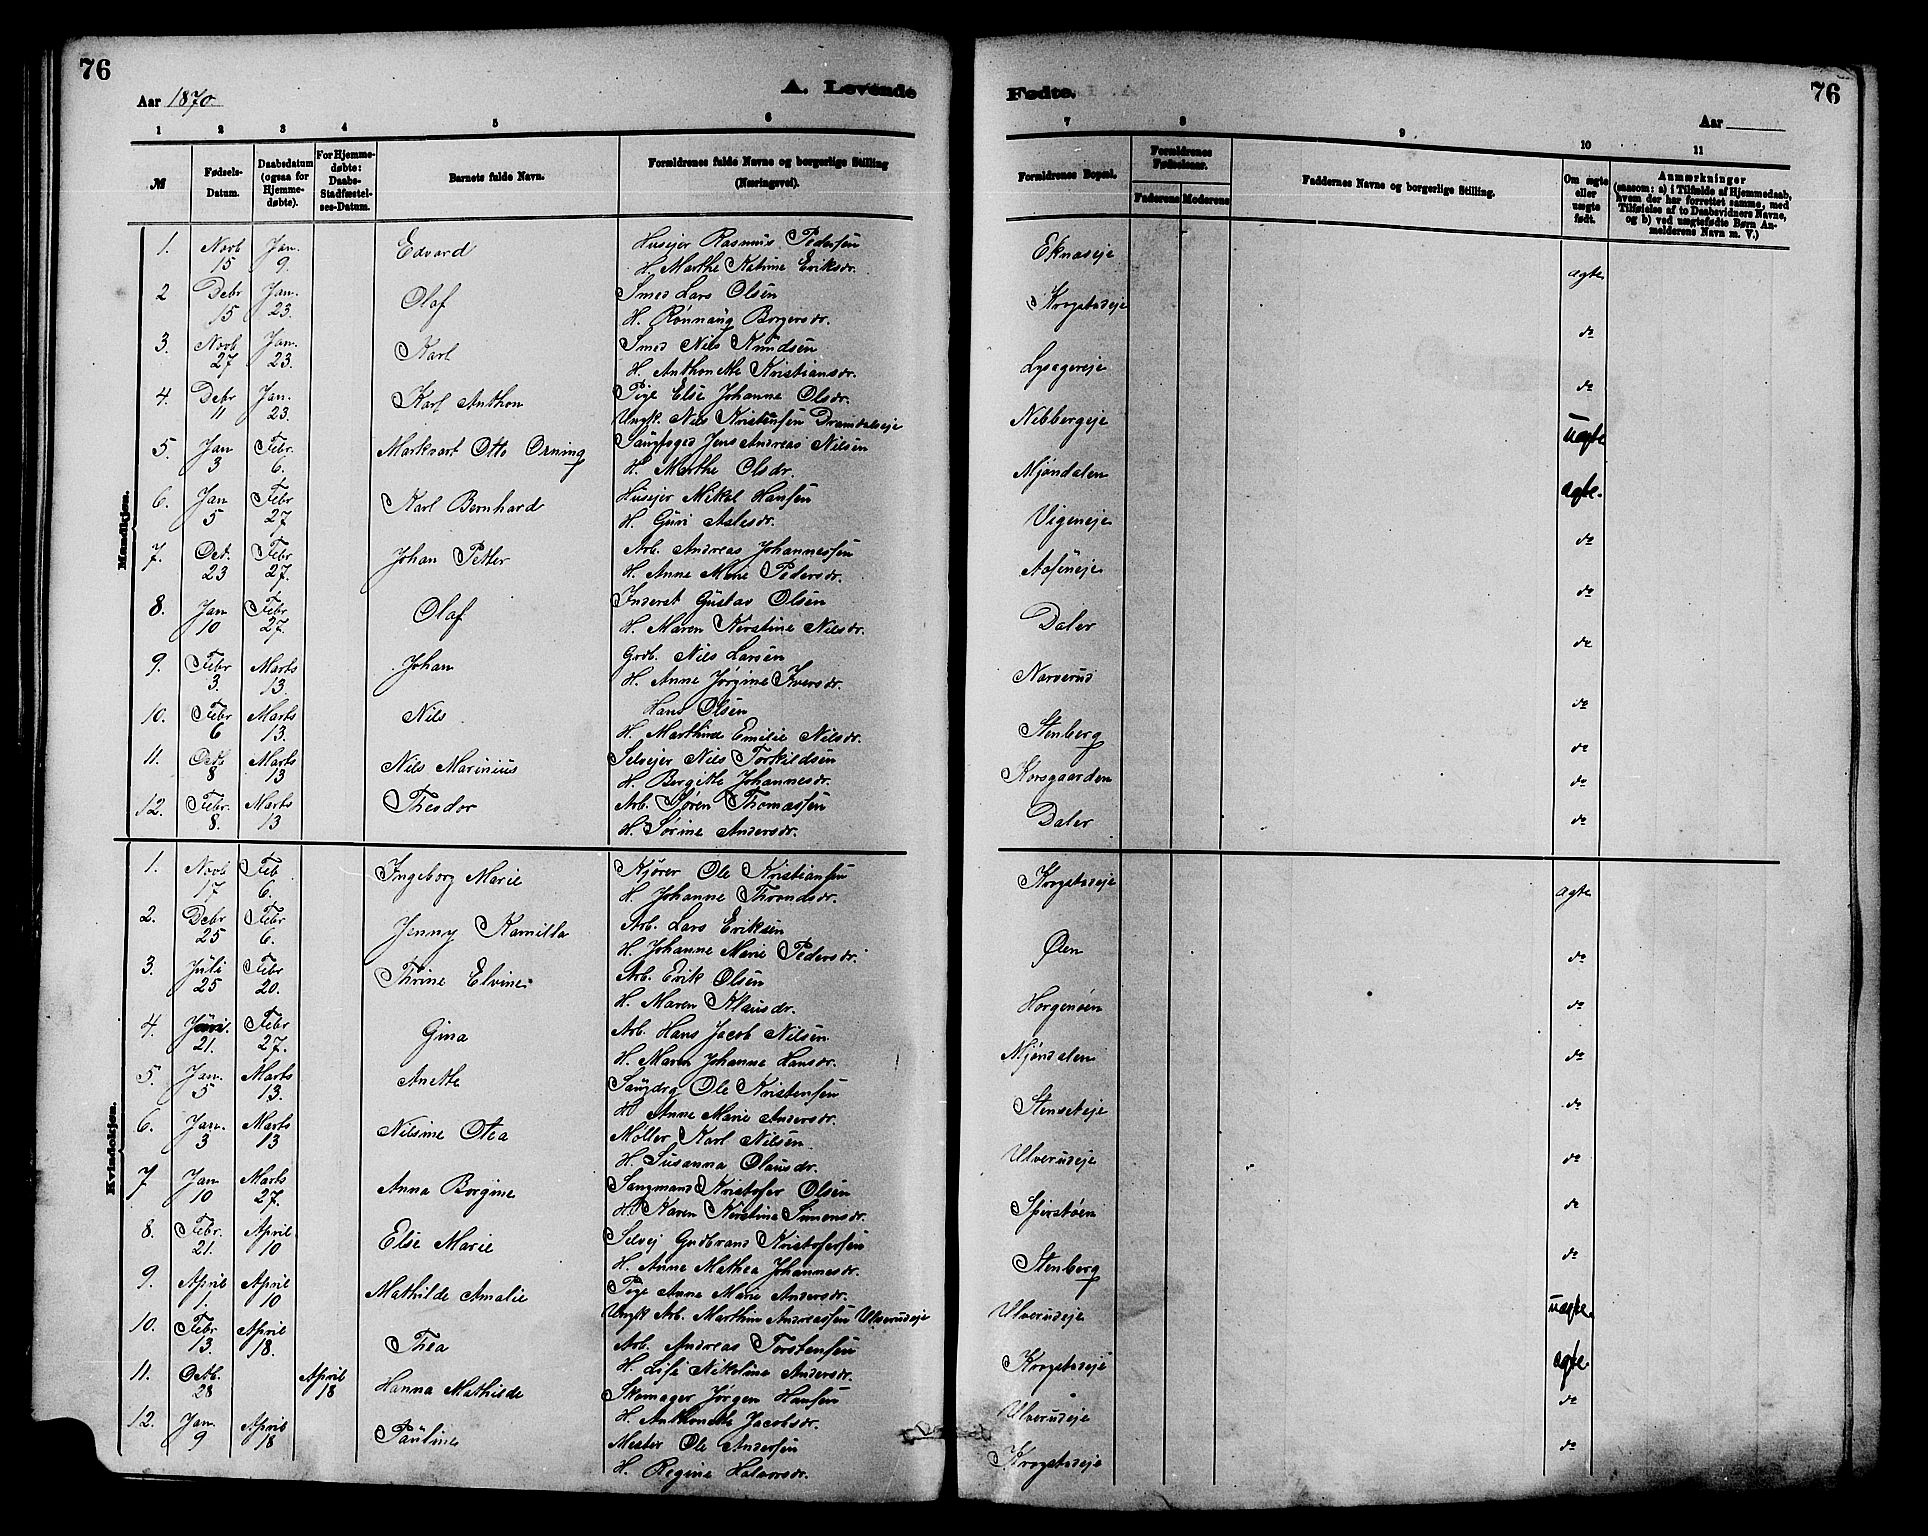 76
Aar 1870.
A. Levende
1 2 3 4 5 6
№
Fødsels-Datum.
Daabsdatum (ogsaa for Hjemmedøbte).
For Hjemmedøbte: Daabs-Stadfæstelses-Datum.
Barnets fulde Navn.
Forældrenes fulde Navne og borgerlige Stilling (Næringsvei).
Fødte.
76
Aar
7 8 9 10 11
Forældrenes Bopæl.
Forældrenes Fødselsaar.
Faderens Moderens
Faddernes Navne og borgerlige Stilling.
Om ægte eller uægte født.
Anmærkninger
(saasom: a) i Tilfælde af Hjemmedaab, hvem der har forrettet samme, med Tilføielse af to Daabsvidners Navne, og b) ved uægtefødte Børn Anmelderens Navn m. V.)
Mandkjøn.
1. Novb 15 Jan. 9. Edvard Husejer Rasmus Pedersen Eknaseje ægte
H. Marthe Katrine Eriksdr.
2 Debr 15 Jan. 23. Olaf Smed Lars Olsen Krogstadeje do
H. Rønnaug Borgersdr.
3. Novb 27 Jan. 23. Karl Smed Nils Knudsen Lysagereje do
H. Anthonette Kristiansdr.
4. Debr 11 Jan. 23. Karl Anthon Pige Else Johanne Olsdr. Nebbergeje uægte
Ungk. Nils Kristensen Dramdaleje
5. Jan 3 Febr. 6. Markvart Otto Orning Saugfoged Jens Andreas Nilsen Mjøndalen ægte.
H. Marthe Olsdr.
6. Jan 5 Febr 27 Karl Bernhard Husejer Mikal Hansen Vigeneje do
H. Guri Aslesdr.
7. Oct. 23 Febr 27. Johan Petter Arb. Andreas Johannessen Aaseneje do
H. Anne Marie Pedersdr.
8. Jan 10 Febr 27. Olaf Inderst Gustav Olsen Daler do
H. Maren Kerstine Nilsdr.
9. Febr 3. Marts 13. Johan Grdb. Nils Larsen Narverud do
H. Anne Jørgine Iversdr.
10. Febr 6 Marts 13. Nils Hans Olsen Stenberg do
H. Marthine Emilie Nilsdr.
11. Octb 8 Marts 13 Nils Marinius Selvejer Nils Torkildsen Korsgaarden do
H. Bergitte Johannesdr.
12. Febr. 8. Marts 13 Theodor Arb. Søren Thomassen Daler do
H. Sørine Andersdr.
Kvindekjøn.
1. Novb 17 Feb 6. Ingeborg Marie Kjører Ole Kristiansen Krogstadeje ægte
H. Johanne Throndsdr.
2. Debr 25 Febr 6. Jenny Kamilla Arb. Lars Eriksen Øen do
H. Johanne Marie Pedersdr.
3. Juli 25 Febr 20. Thrine Elvine Arb. Erik Olsen Horgenøen do
H. Maren Klausdr.
4. 21. Febr 27. Gina Arb. Hans Jacob Nilsen Mjøndalen do
H. Maren Johanne Hansdr.
5. Jan. 5 Marts 13. Anette Saugdrg Ole Kristensen Stenseteje do
H Anne Marie Andersdr.
6. Jan. 3 Marts 13 Nilsine Otea Møller Karl Nilsen Ulverudeje do
H. Susanna Olausdr.
7 Jan 10 Marts 27. Anna Borgine Saugmand Kristofer Olsen Spirstøen do
H. Karen Kerstine Simensdr.
8. Febr. 21. April 10 Else Marie Selvej Gudbrand Kristofersen Stenberg do
H. Anne Mathea Johannesdr.
9. April 1. April 10 Mathilde Amalie Pige Anne Marie Andersdr. Ulverudeje uægte
Ungk Arb. Marthin Andreassen Ulverudeje
10. Febr 13. April 18. Thea Arb. Andreas Torstensen Krogstadeje ægte
H. Lise Nikoline Andersdr.
11. Octb. 28 April 18 Hanna Mathilde Skomager Jørgen Hansen Ulverudeje do
H. Anthonette Jacobsdr.
12. Jan. 9 April 18 Pauline Mester Ole Andersen Krogstadeje do
H. Regine Halvorsdr.